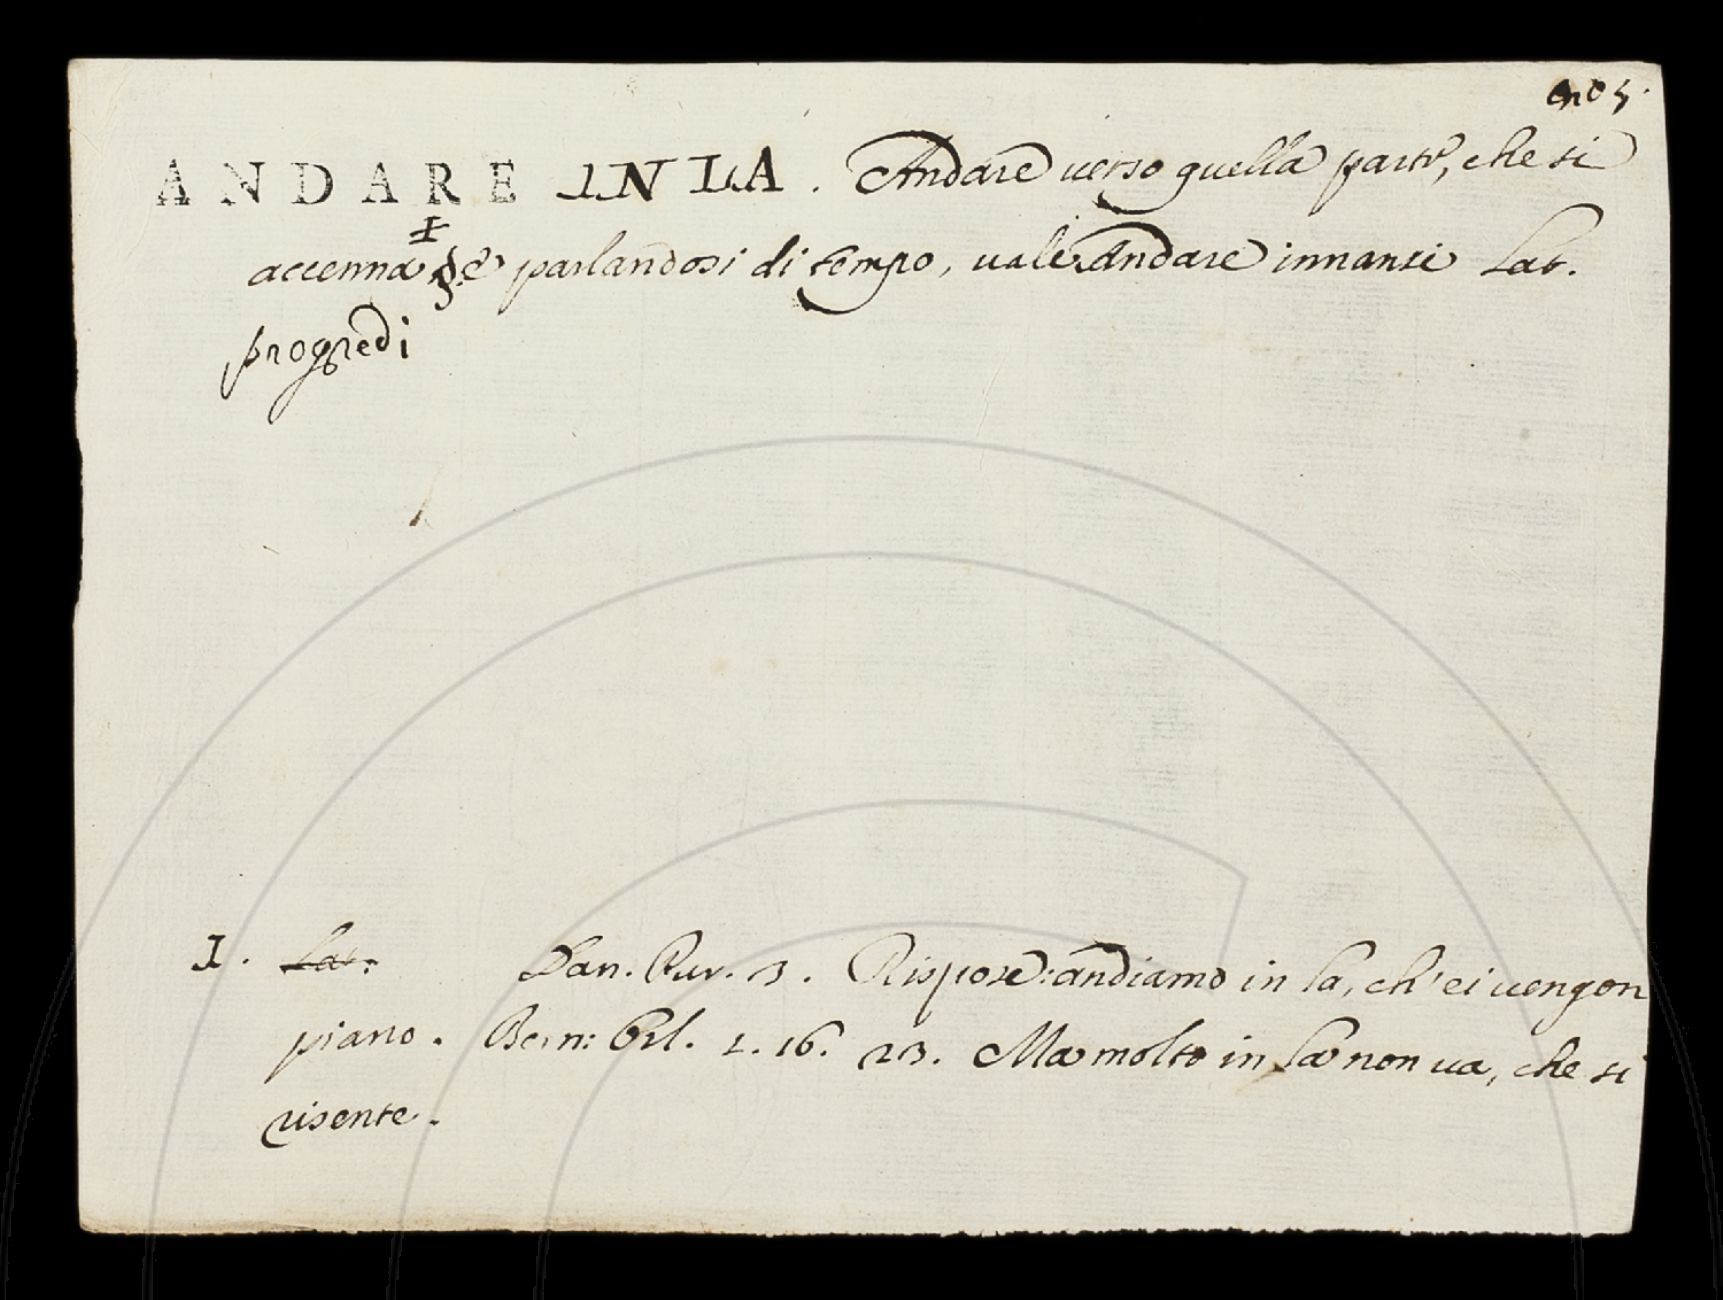 ANDARE IN LA. Andare verso quella parte, che si
accenna e parlandosi di tempo, vale Andare innanzi Lat.
progredi
I. Lat. Dan. Pur. 3. Rispose: andiamo in la, ch' ei vengon
piano. Bern: Orl. 1. 16. 23. Ma molto in là non va, che si
risente.